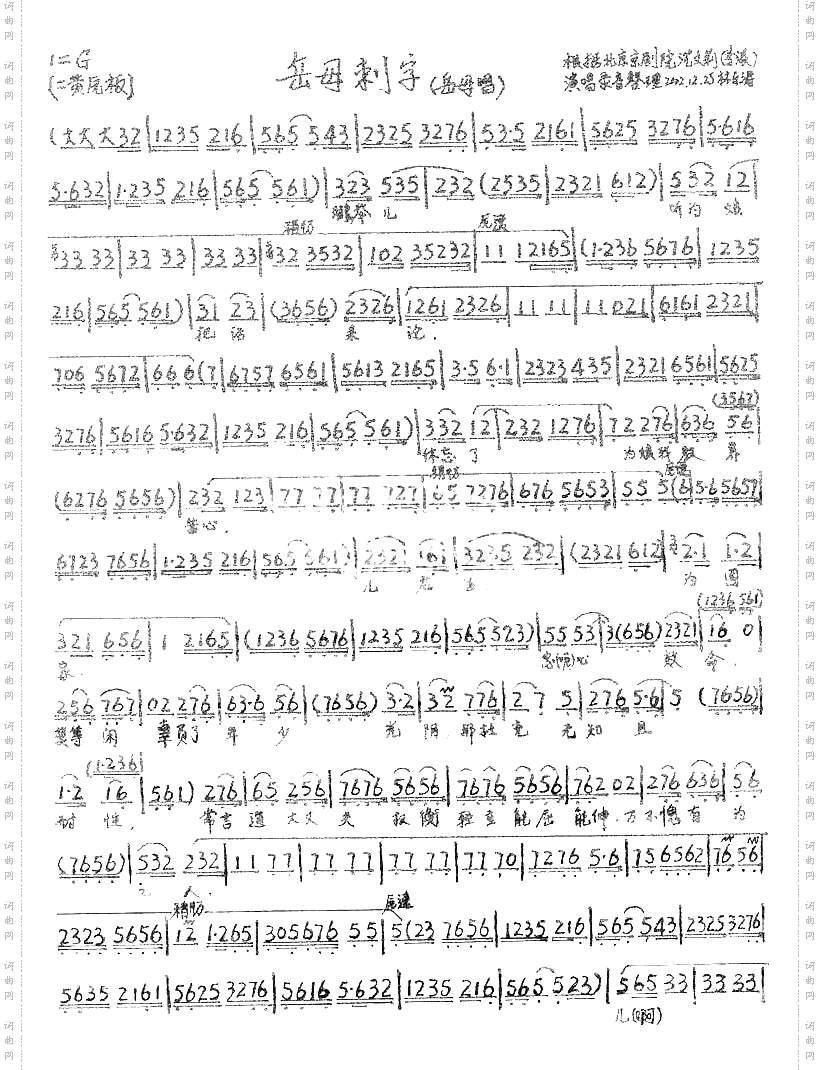 1=G 岳母刺字 (岳母唱) 根据北京京剧院沈文莉(李派)
[二黄原板] 演唱录音整理 2002.12.25
(大大大32|1235 216|565 543|2325 3276|53·5 2161|5625 3276|5·616
5·632|1·235 216|565 561)|323 535|232 (2535|2321 612)|532 12|
鹏举 儿 听为 娘
稍切 原速
33 33|33 33|33 33|32 3532|102 35232|11 12165|(1·236 5676|1235
216|565 561)|31 23|(3656) 2326|1261 2326|11 11|11 021|6161 2321|
把话 来 论.
706 5672|66 6(7|6757 6561|5613 2165|3·5 6·1|2323 435|2321 6561|5625
(3567)
3276|5616 5·632|1235 216|565 561)|332 12|232 1276|72 276|636 56|
休忘了 为娘我教 养
稍切 原速
(6276 5656)|232 123|77 77|77 727|65 7276|676 5653|55 5(6|5·6 5657|
苦心.
6723 7656|1·235 216|565 561)|2321 161|323·5 232|(2321 612)|2·1 1·2|
儿 为 国
(1236 561)
321 656|1 2165|(1236 5676|1235 216|565 523)|55 53|3(656) 2321|16 0|
家. 心 效 命.
256 767|02 276|63·6 56|(7656) 3·2|32 776|2 7 5|276 5·6|5 (7656)|
莫等 闲 辜负了 年 少 光 阴 那杜 宪 尤知 且
(1·236)
1·2 16|561) 276|65 256|7676 5656|7676 5656|762 02|276 636|56
耐 性. 常言 道 大丈 夫 权 衡 独立 能屈 能伸. 方不愧有 为
(7656)|532 232|11 77|77 77|77 77|77 70|7276 5·6|756 6562|76 56|
之 人.
稍切 原速
2323 5656|12 1·265|305676 55|5(23 7656|1235 216|565 543|2325 3276|
5635 2161|5625 3276|5616 5·632|1235 216|565 523)|565 33|33 33|
儿(啊)
词曲网